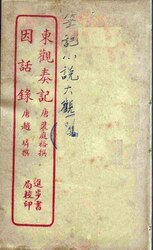 笔記小說大觀
東觀奏記 唐裴庭裕撰
因話錄 唐趙璘撰
進步書
局校印